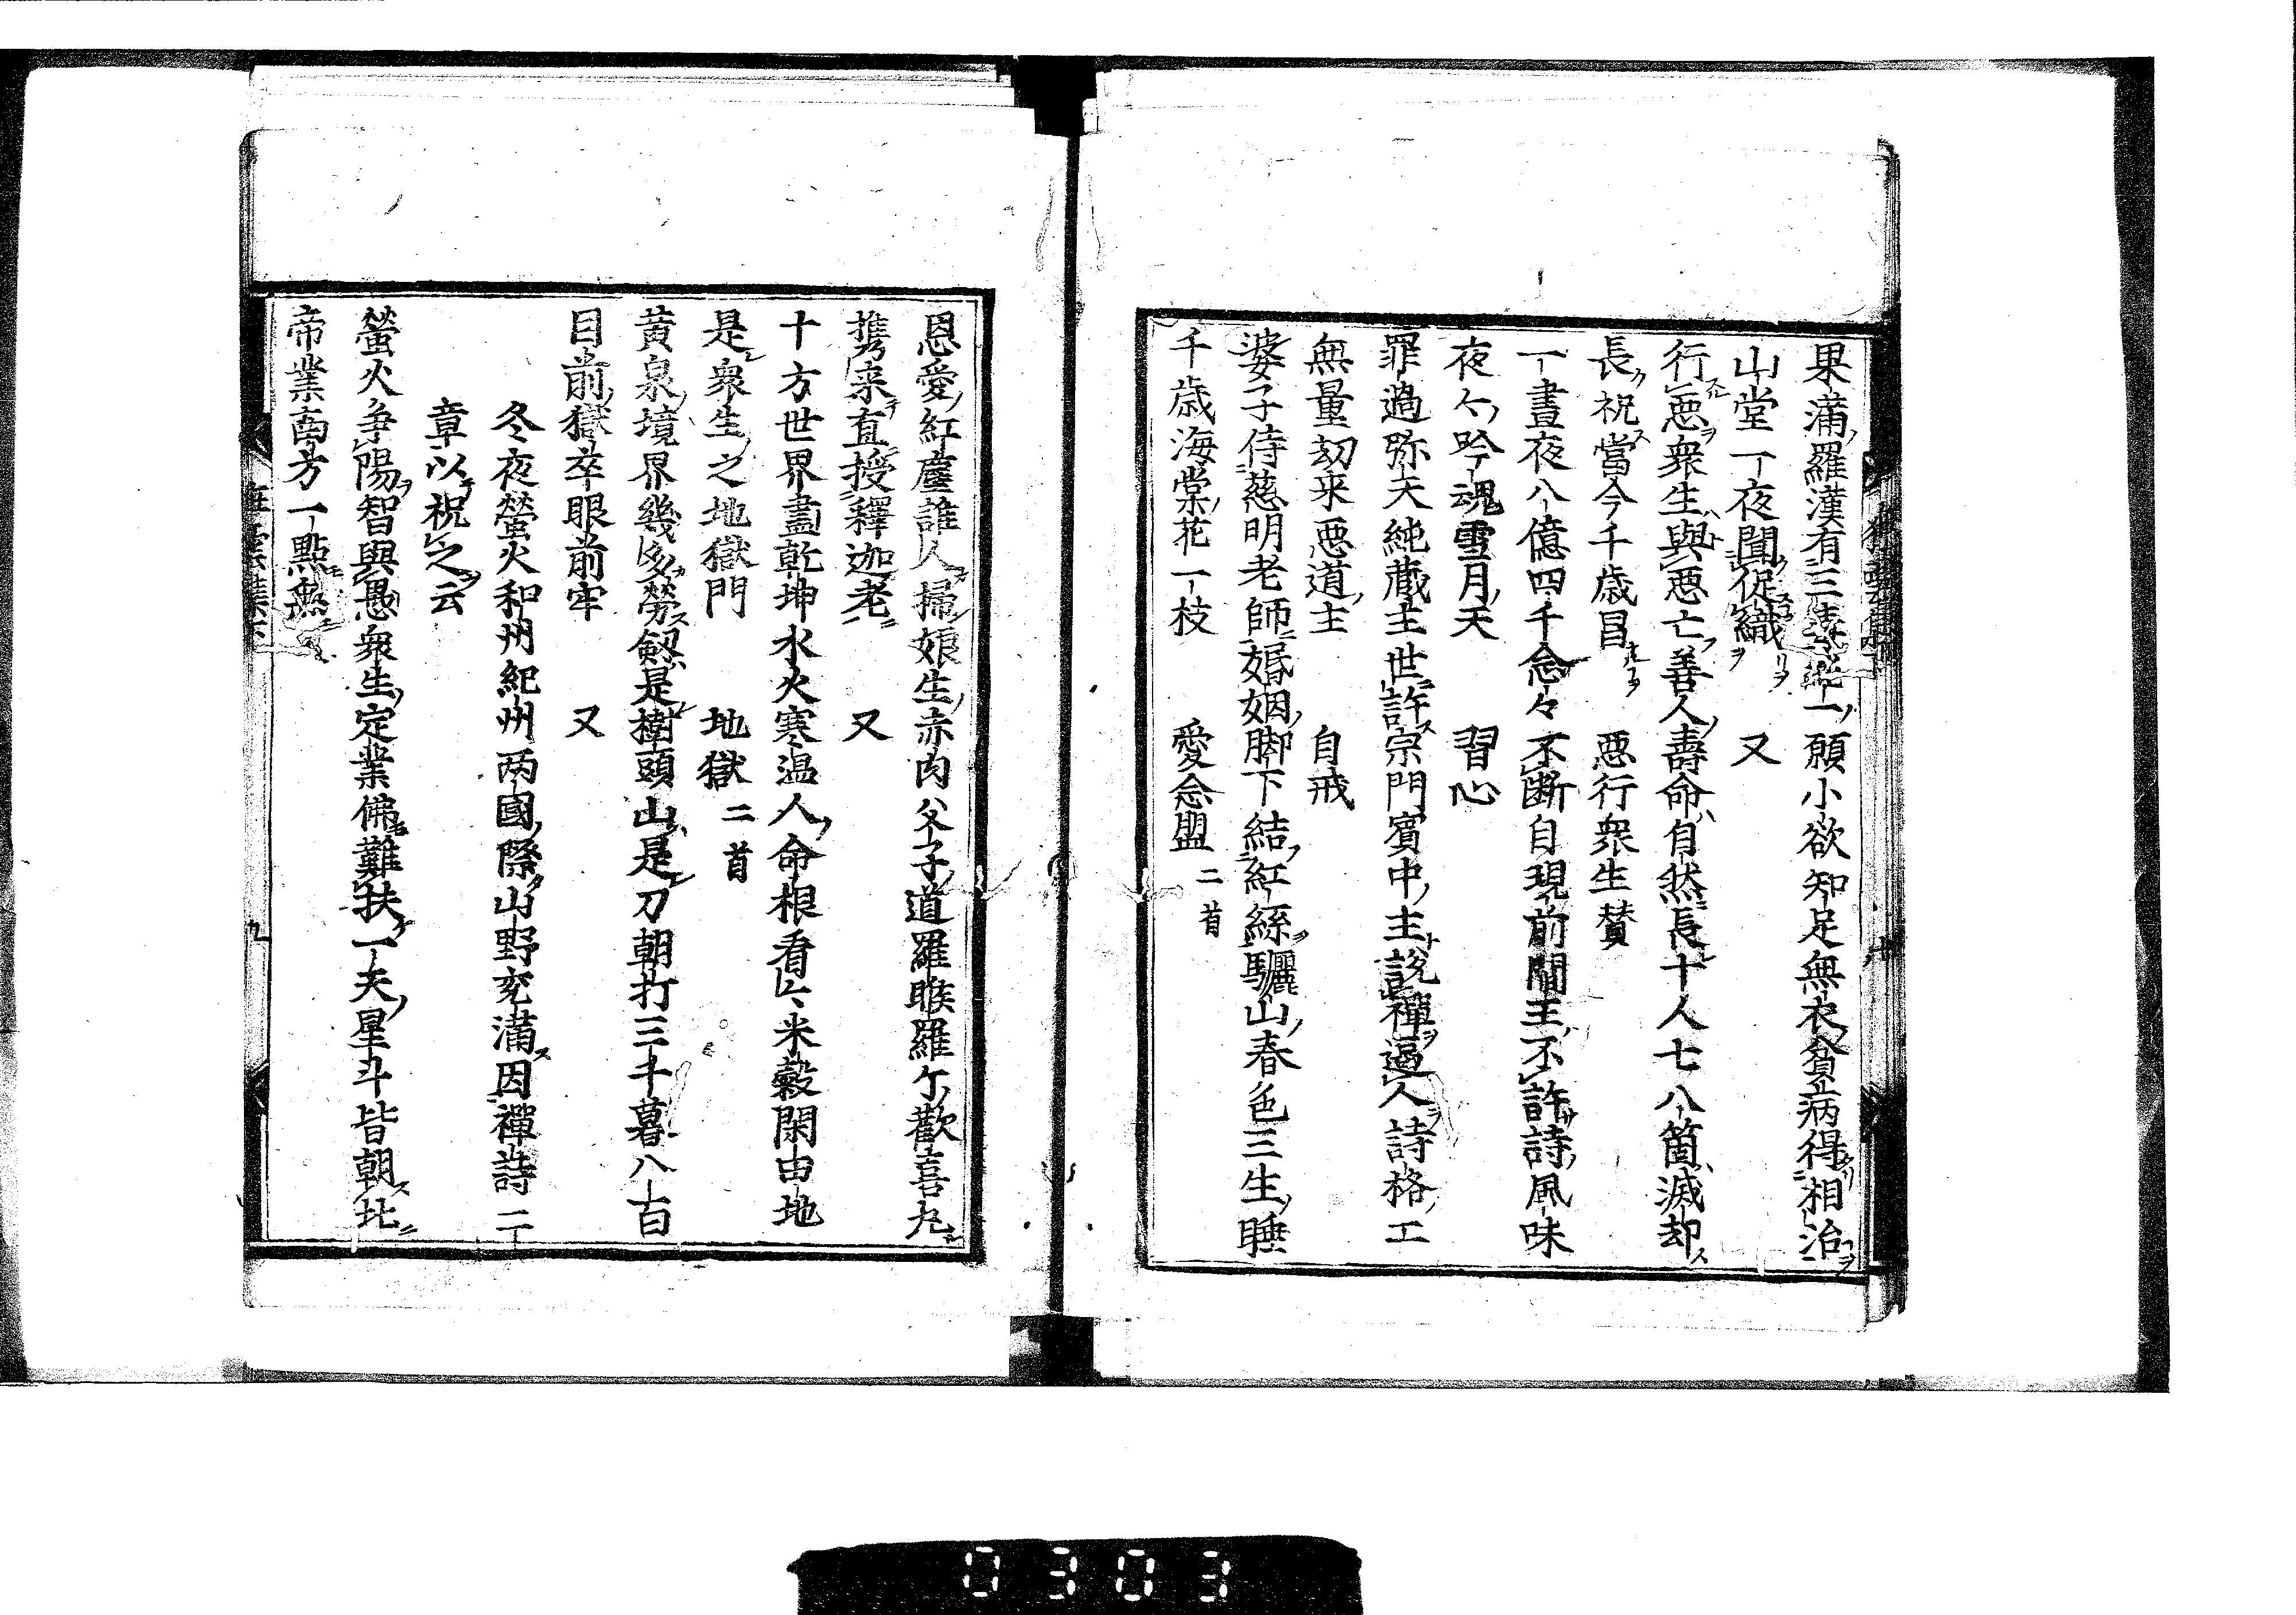 果滿羅漢有三毒一願小欲知足無衣貧病得相治
山堂一夜聞促織　又
行悪衆生與悪亡善人壽命自然長十人七八箇滅却
長祝當今千歳昌　悪行衆生賛
一晝夜八億四千念々不断自現前閻王不許詩風味
夜々吟魂雪月天　習心
罪過弥天純蔵主世許宗門賓中主説禪逼人詩格工
無量劫来悪道主　自戒
婆子侍慈明老師婚姻脚下結紅絲驪山春色三生睡
千歳海棠花一枝　愛念盟 二首
恩愛紅塵誰人掃娘生赤肉父子道羅睺羅个歓喜丸
携来直授釋迦老　又
十方世界盡乾坤水火寒温人命根看々米穀閑田地
是衆生之地獄門　地獄 二首
黄泉境界幾多勞劔是樹頭山是刀朝打三千暮八百
目前獄卒眼前牢　又
冬夜螢火和州紀州両國際山野充滿因禪詩二
章以祝之云
螢火争陽智與愚衆生定業佛難扶一天星斗皆朝北
帝業南方一點無
九
0303